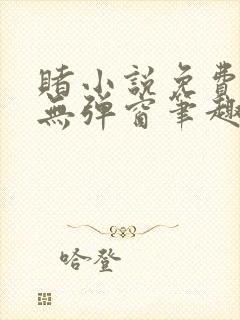 賭小説免費
無弹窗筆趣
哈登